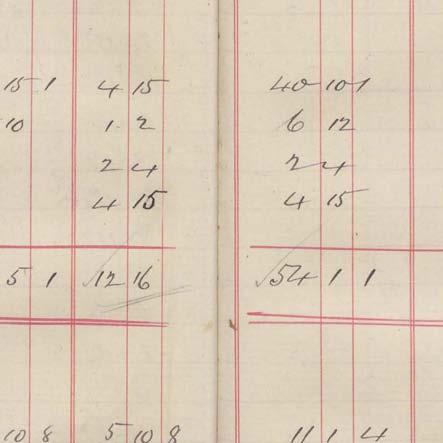 15 1 4 15 40 10 1
10 1 2 6 12
2 4 2 4
4 15 4 15
5 1 12 16 54 1 1
10 8 5 10 8 11 1 4